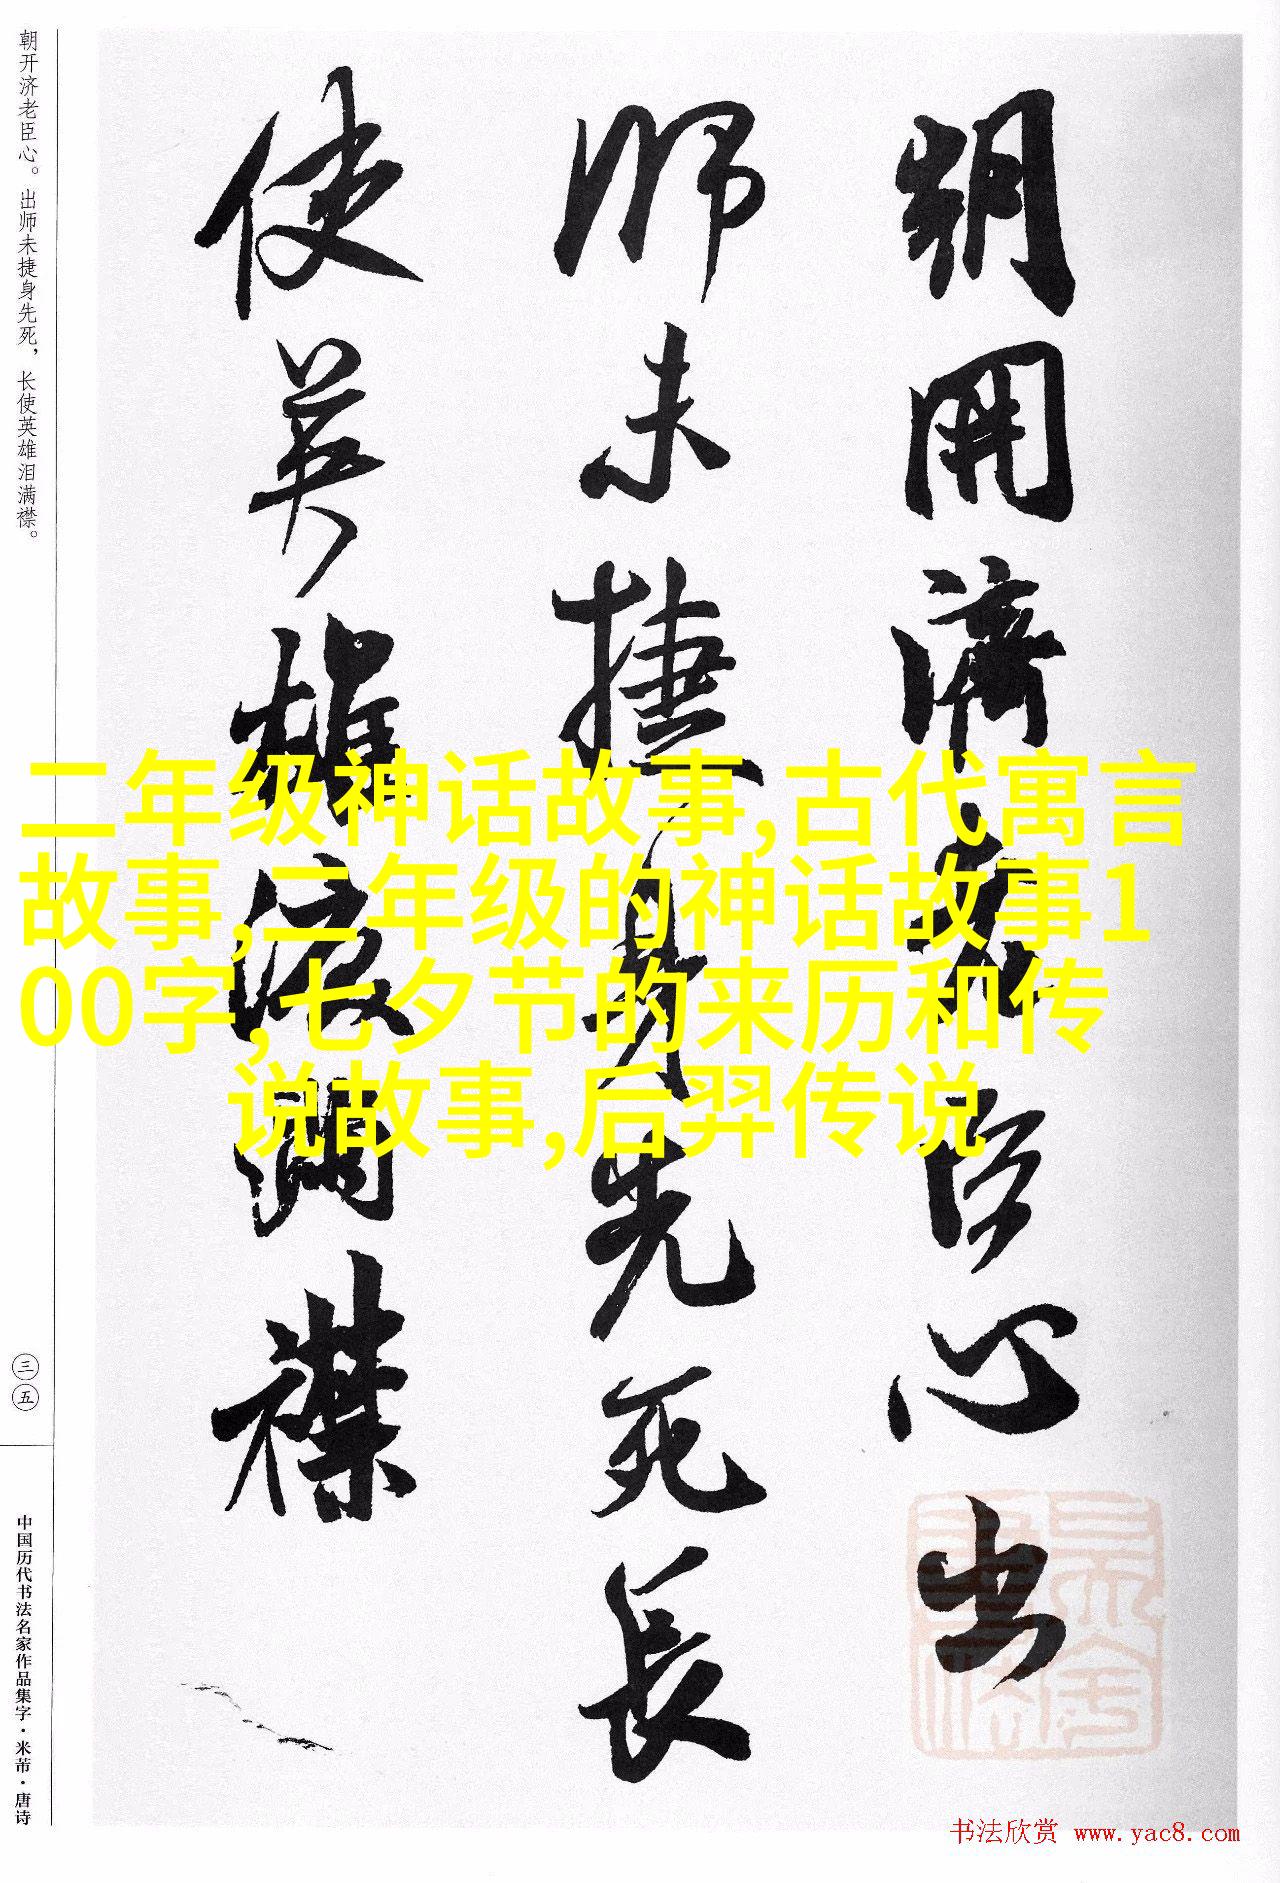 朝开济老臣心。出师未捷身先死，长使英雄泪满襟。
三五
中国历代书法名家作品集字·米芾·唐诗
朝開濟老臣心出
師未捷身先死長
使英雄淚滿襟
二年级神话故事,古代寓言
故事,二年级的神话故事1
00字,七夕节的来历和传
说故事,后羿传说
书法欣赏 www.yac8.com